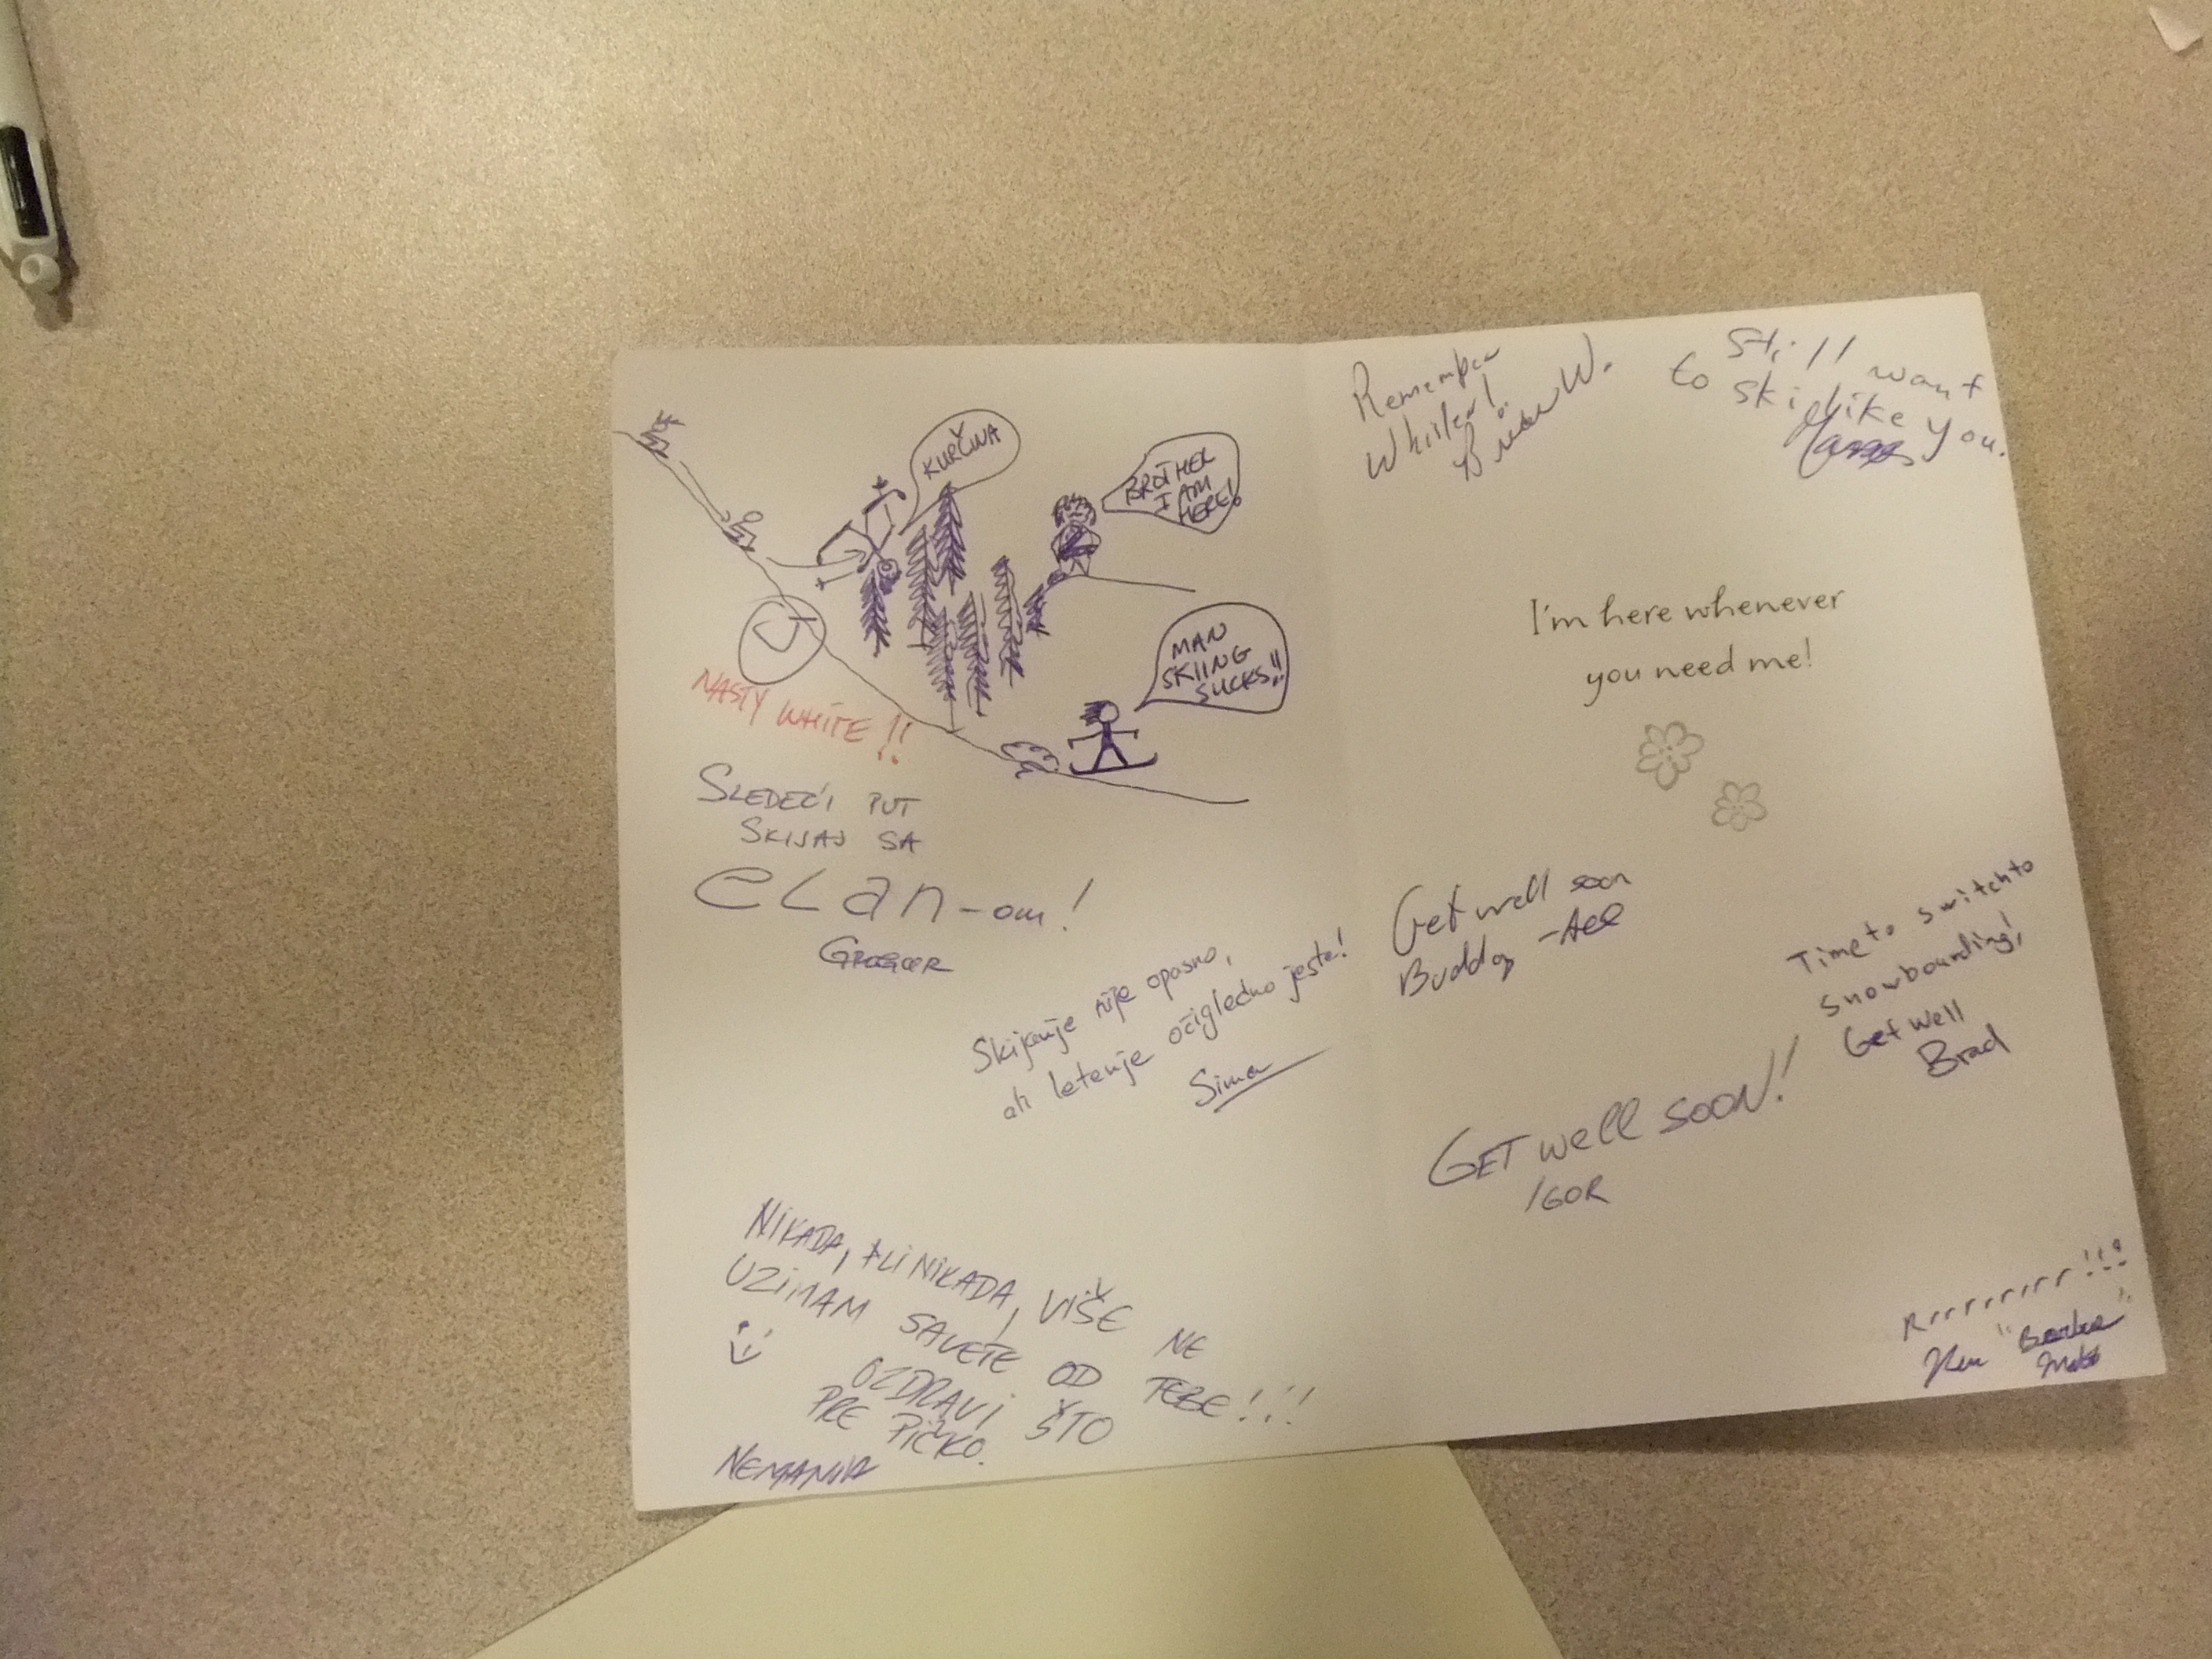 KURČINA
BROTHER
I AM
HERE!
MAN
SKIING
SUCKS!!
NASTY WHITE!!
SLEDEĆI PUT
SKIJAJ SA
eLan-om!
Skijanje nije opasno,
ali letenje očigledno jeste!
Sima
NIKADA, ALI NIKADA, VIŠE NE
UZIMAM SAVETE OD TEBE!!!
OZDRAVI ŠTO
PRE PIČKO.
NEMANJA
Remember
Whistler!
Brian W.
Still want
to ski like you.
I'm here whenever
you need me!
Get well soon
Buddy
Time to switch to
snowboarding!
Get Well
Brad
GET well SOON!
IGOR
Rrrrrrrr!!!